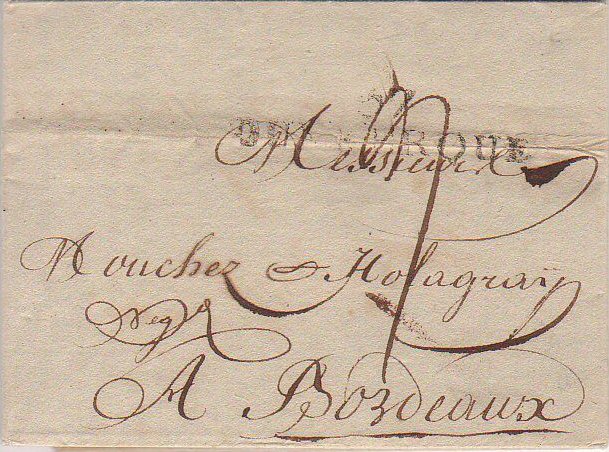 DUNKERQUE
Messieurs
Mouchez & Holagraÿ
Neg.
A Bordeaux